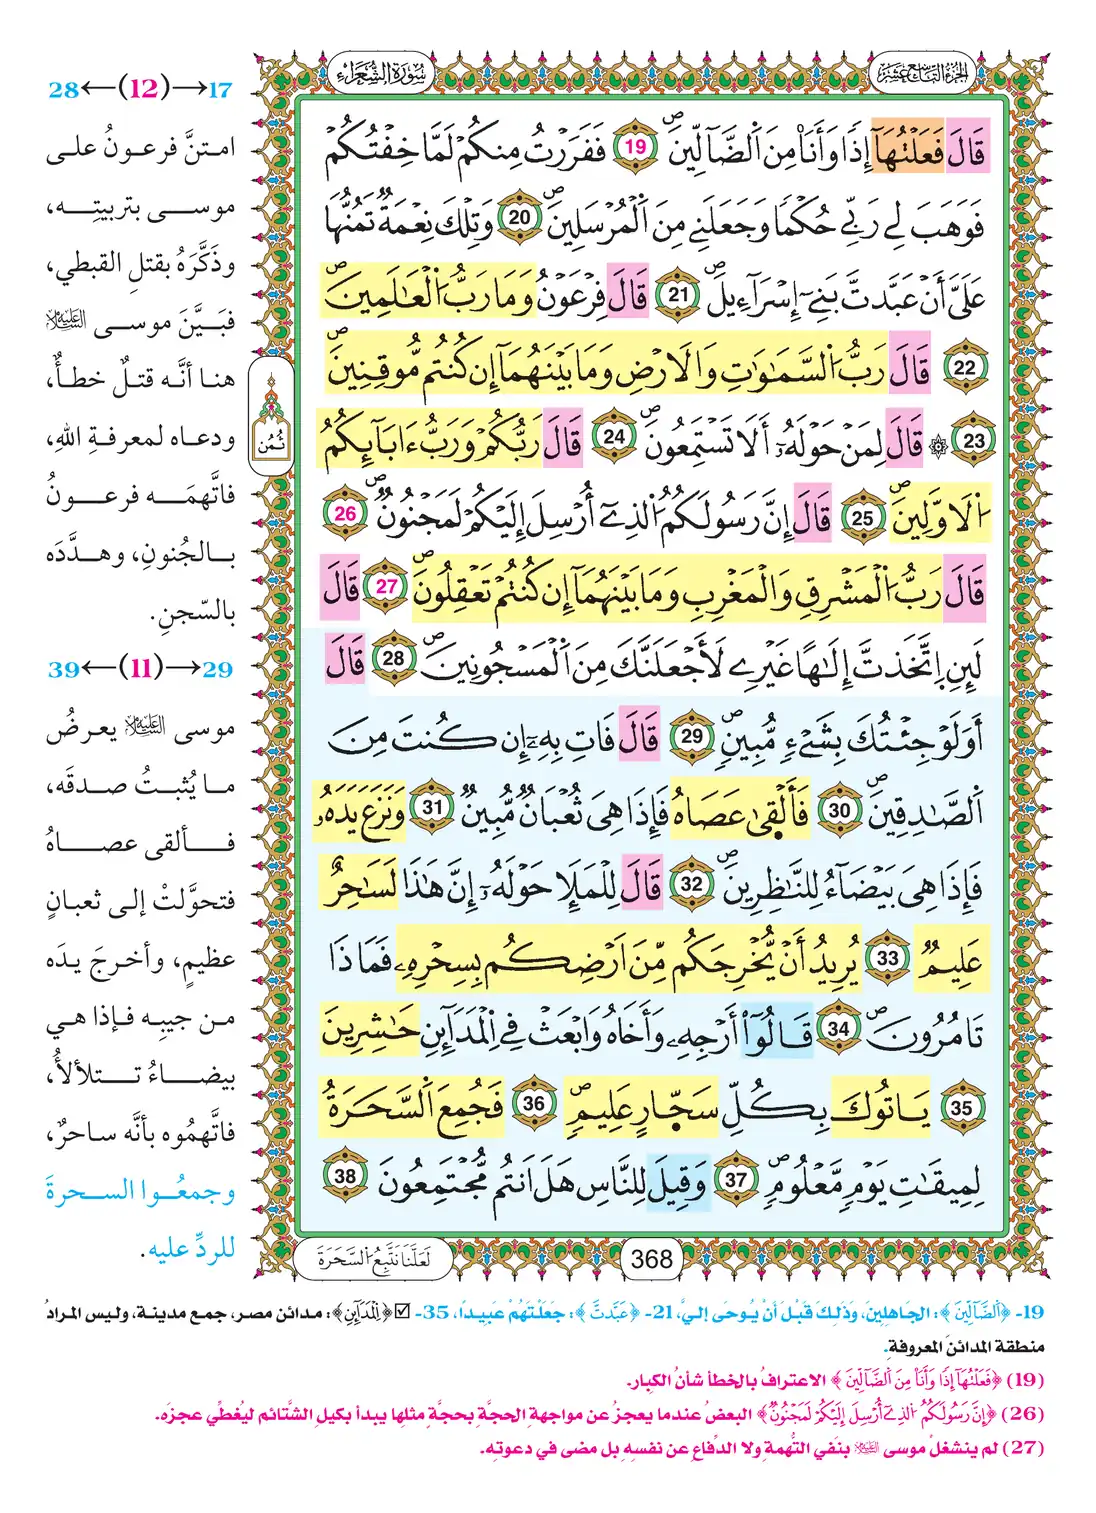 الجزء التاسع عشر
سورة الشعراء
قَالَ فَعَلْتُهَآ إِذٗا وَأَنَا۠ مِنَ اَ۬لضَّآلِّينَۖ 19 فَفَرَرْتُ مِنكُمْ لَمَّا خِفْتُكُمْ
فَوَهَبَ لِے رَبِّے حُكْماٗ وَجَعَلَنِے مِنَ اَ۬لْمُرْسَلِينَۖ 20 وَتِلْكَ نِعْمَةٞ تَمُنُّهَا
عَلَيَّ أَنْ عَبَّدتَّ بَنِےٓ إِسْرَآءِيلَۖ 21 قَالَ فِرْعَوْنُ وَمَا رَبُّ اُ۬لْعَٰلَمِينَۖ
22 قَالَ رَبُّ اُ۬لسَّمَٰوَٰتِ وَالَارْضِ وَمَا بَيْنَهُمَآ إِن كُنتُم مُّوقِنِينَۖ
23 ۞ قَالَ لِمَنْ حَوْلَهُۥٓ أَلَا تَسْتَمِعُونَۖ 24 قَالَ رَبُّكُمْ وَرَبُّ ءَابَآئِكُمُ
اُ۬لَاوَّلِينَۖ 25 قَالَ إِنَّ رَسُولَكُمُ اُ۬لذِےٓ أُرْسِلَ إِلَيْكُمْ لَمَجْنُونٞۖ 26
قَالَ رَبُّ اُ۬لْمَشْرِقِ وَالْمَغْرِبِ وَمَا بَيْنَهُمَآ إِن كُنتُمْ تَعْقِلُونَۖ 27 قَالَ
لَئِنِ اِ۪تَّخَذتَّ إِلَٰهاً غَيْرِے لَأَجْعَلَنَّكَ مِنَ اَ۬لْمَسْجُونِينَۖ 28 قَالَ
أَوَلَوْ جِئْتُكَ بِشَےْءٖ مُّبِينٖۖ 29 قَالَ فَاتِ بِهِۦٓ إِن كُنتَ مِنَ
اَ۬لصَّٰدِقِينَۖ 30 فَأَلْق۪ىٰ عَصَاهُ فَإِذَا هِىَ ثُعْبَانٞ مُّبِينٞ 31 وَنَزَعَ يَدَهُۥ
فَإِذَا هِىَ بَيْضَآءُ لِلنَّٰظِرِينَۖ 32 قَالَ لِلْمَلَإِ حَوْلَهُۥٓ إِنَّ هَٰذَا لَسَٰحِرٌ
عَلِيمٞ 33 يُرِيدُ أَنْ يُّخْرِجَكُم مِّنَ اَرْضِكُم بِسِحْرِهِۦ فَمَاذَا
تَامُرُونَۖ 34 قَالُوٓاْ أَرْجِهِۦ وَأَخَاهُ وَابْعَثْ فِے اِ۬لْمَدَآئِنِ حَٰشِرِينَ
35 يَاتُوكَ بِكُلِّ سَحّ۪ارٍ عَلِيمٖۖ 36 فَجُمِعَ اَ۬لسَّحَرَةُ
لِمِيقَٰتِ يَوْمٖ مَّعْلُومٖۖ 37 وَقِيلَ لِلنَّاسِ هَلَ اَنتُم مُّجْتَمِعُونَ 38
ثُمُن
لَعَلَّنَا نَتَّبِعُ اُ۬لسَّحَرَةَ
368
17→(12)←28
امتنَّ فرعونُ على
موسى بتربيتِه،
وذكَّرَهُ بقتلِ القبطي،
فبَيَّنَ موسى عليه السلام
هنا أنَّه قتلٌ خطأٌ،
ودعاه لمعرفةِ اللهِ،
فاتَّهمَه فرعونُ
بالجُنونِ، وهدَّدَه
بالسّجنِ.
29→(11)←39
موسى عليه السلام يعرضُ
ما يُثبتُ صدقَه،
فألقى عصاهُ
فتحوَّلتْ إلى ثعبانٍ
عظيمٍ، وأخرجَ يدَه
من جيبِه فإذا هي
بيضاءُ تتلألأُ،
فاتَّهمُوه بأنَّه ساحرٌ،
وجمعُوا السحرةَ
للردِّ عليه.
19- ﴿اَ۬لضَّآلِّينَ﴾: الجَاهلِينَ، وَذَلِكَ قَبْلَ أَنْ يُوحَى إليَّ، 21- ﴿عَبَّدتَّ﴾: جَعَلْتَهُمْ عَبِيدًا، 35- ☑ ﴿اِ۬لْمَدَآئِنِ﴾: مدائن مصر، جمع مدينة، وليس المرادُ
منطقة المدائنَ المعروفةِ.
(19) ﴿فَعَلْتُهَآ إِذٗا وَأَنَا۠ مِنَ اَ۬لضَّآلِّينَ﴾ الاعترافُ بالخطأ شأنُ الكبار.
(26) ﴿إِنَّ رَسُولَكُمُ اُ۬لذِےٓ أُرْسِلَ إِلَيْكُمْ لَمَجْنُونٞ﴾ البعضُ عندما يعجزُ عن مواجهةِ الحجَّةِ بحجَّةٍ مثلِها يبدأ بكيلِ الشَّتائم ليُغطِّي عجزَه.
(27) لم ينشغلْ موسى عليه السلام بنَفي التُّهمةِ ولا الدِّفاعِ عن نفسِهِ بل مضى في دعوتِه.